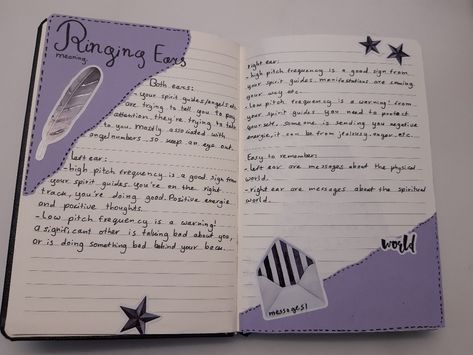 Ringing Ears
meaning
Both ears:
- your spirit guides/angels etc
are trying to tell you to pay
attention, they're trying to talk
to you. mostly associated with
angelnumbers so keep an eye out.
Left ear:
- high pitch frequency is a good sign from
your spirit guides. you're on the right
track, you're doing good. Positive energie
and positive thoughts.
- Low pitch frequency is a warning!
a significant other is talking bad about you,
or is doing something bad behind your back...
right ear:
- high pitch frequency is a good sign from
your spirit guides. manifestations are coming
your way etc.
- Low pitch frequency is a warning! from
your spirit guides. you need to protect
your self. someone is sending you negative
energie, it can be from jealousy, anger, etc...
Easy to remember:
- left ear are messages about the physical
world.
- right ear are messages about the spiritual
world.
world
messages!